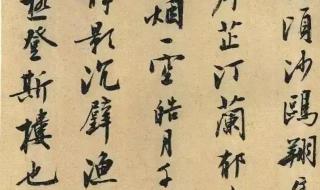 頃沙鷗翔集
岸芷汀蘭郁
烟一空皓月千
靜影沉璧漁
極登斯樓也